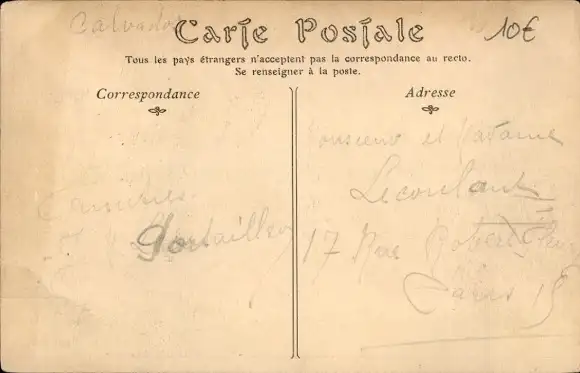 Calvados
10€
Carte Postale
Tous les pays étrangers n'acceptent pas la correspondance au recto.
Se renseigner à la poste.
Correspondance
Adresse
Monsieur et Madame
Lecoulant
17 Rue Robert
Paris 15